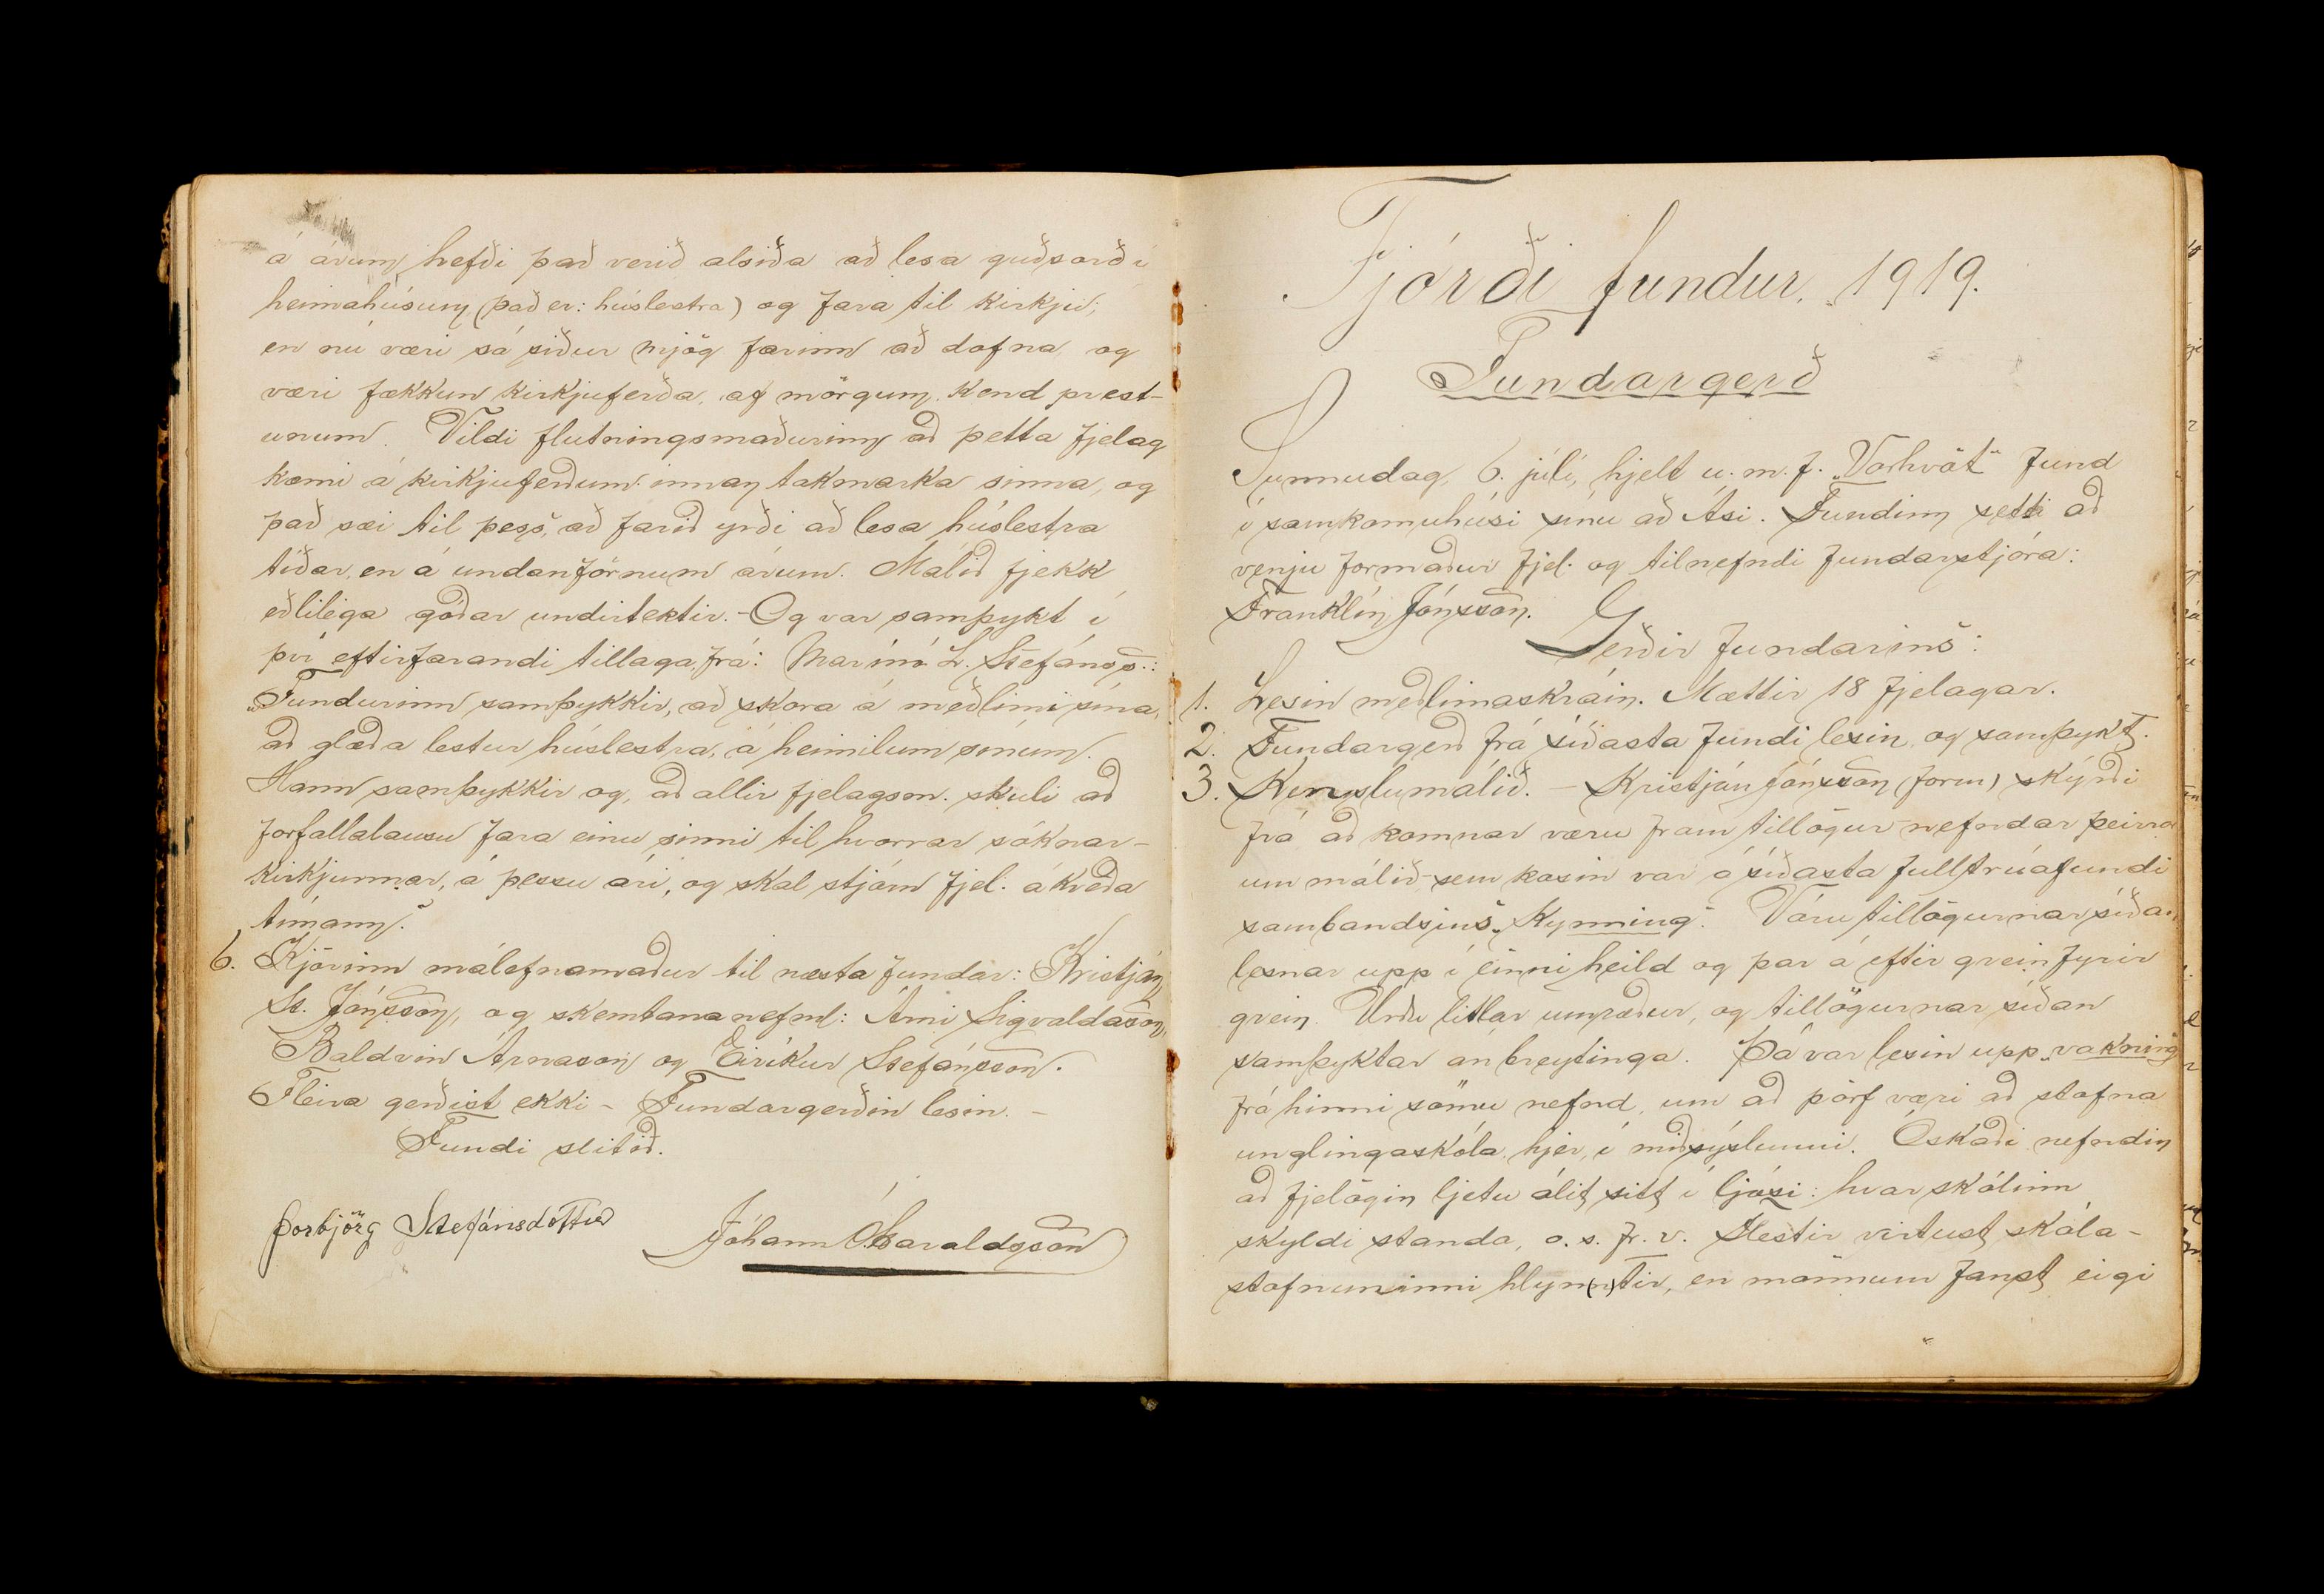 á árum hefði það verið alsiða að lesa guðsorð í
heimahúsum (það er: húslestra) og fara til kirkju;
en nú væri sá siður mjög farinn að dofna, og
væri fækkun kirkjuferða, af mörgum, kend prest-
unum. Vildi flutningsmaðurinn að þetta fjelag
kæmi á kirkjuferðum innan takmarka sinna, og
það sæi til þess, að farið yrði að lesa húslestra
tíðar, en á undanförnum árum. Málið fjekk
eðlilega góðar undirtektir. - Og var samþykt í
því eftirfarandi tillaga frá: Marínó L. Stefánss.:
„Fundurinn samþykkir, að skora á meðlimi sína,
að glæða lestur húslestra, á heimilum sínum.
Hann samþykkir og, að allir fjelagsm. skuli að
forfallalausu fara einu sinni til hvorrar sóknar-
kirkjunnar, á þessu ári, og skal stjórn fjel. ákveða
tímann.“
6. Kjörinn málefnamaður til næsta fundar: Kristján
St. Jónsson, og skemtananefnd: Árni Sigvaldason,
Baldvin Árnason og Eiríkur Stefánsson.
Fleira gerðist ekki - Fundargerðin lesin. -
Fundi slitið.
Þorbjörg Stefánsdóttir Jóhann Ó. Haraldsson
Fjórði fundur. 1919.
Fundargerð
Sunnudag, 6. júlí, hjelt u. m. f. „Vorhvöt“ fund
í samkomuhúsi sínu að Ási. Fundinn setti að
venju formaður fjel. og tilnefndi fundarstjóra:
Franklín Jónsson.
Gerðir fundarins:
1. Lesin meðlimaskráin. Mættir 18 fjelagar.
2. Fundargerð frá síðasta fundi lesin og samþykt.
3. Kenslumálið. - Kristján Jónsson (form) skýrði
frá að komnar væru fram tillögur nefndar þeirra
um málið sem kosin var á síðasta fulltrúafundi
sambandsins „Kynning“. Vóru tillögurnar síðan
lesnar upp í einni heild og þar á eftir grein fyrir
grein. Urðu litlar umræður, og tillögurnar síðan
samþyktar án breytinga. Þá var lesin upp „vakning“
frá hinni sömu nefnd, um að þörf væri að stofna
unglingaskóla, hjer, í miðsýslunni. Óskaði nefndin
að fjelögin ljetu álit sitt í ljósi: hvar skólinn
skyldi standa, o. s. fr. v. Flestir virtust skóla-
stofnuninni hlyn(n)tir, en mönnum fanst eigi